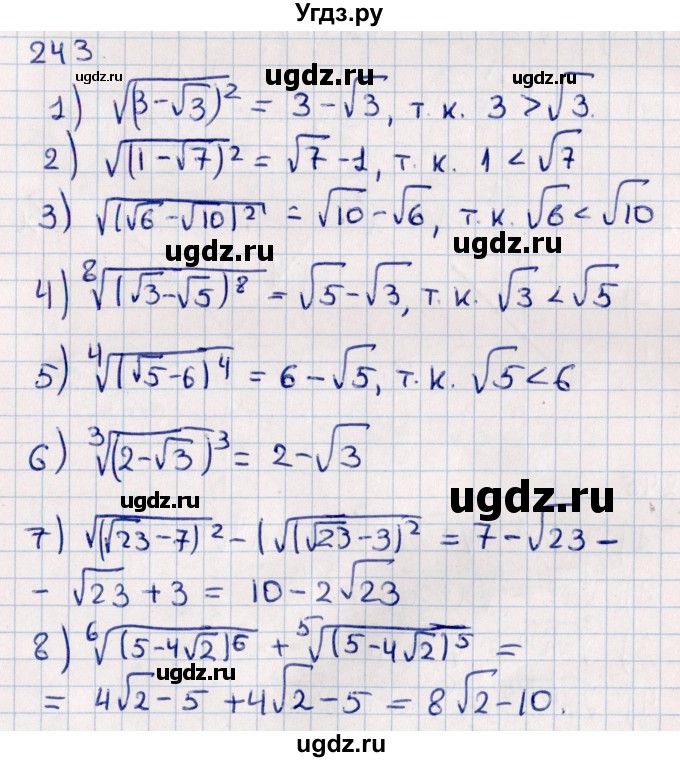 Угдз.ру
243
ugdz.ru
ugdz.ru
ugdz.ru
1) √(3-√3)² = 3-√3, т.к. 3 > √3.
2) √(1-√7)² = √7-1, т.к. 1 < √7
3) √(√6-√10)² = √10-√6, т.к. √6 < √10
ugdz.ru
ugdz.ru
4) ⁸√(√3-√5)⁸ = √5-√3, т.к. √3 < √5
5) ⁴√(√5-6)⁴ = 6-√5, т.к. √5 < 6
6) ³√(2-√3)³ = 2-√3
ugdz.ru
ugdz.ru
7) √(√23-7)² - (√(√23-3)² = 7-√23 -
- √23 + 3 = 10-2√23
ugdz.ru
ugdz.ru
8) ⁶√(5-4√2)⁶ + ⁵√(5-4√2)⁵ =
= 4√2-5 + 4√2-5 = 8√2-10.
ugdz.ru
ugdz.ru
ugdz.ru